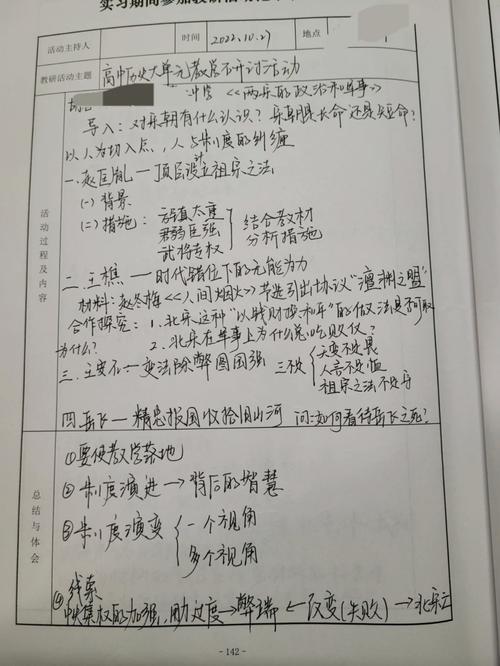 实习期间参加教研活动
活动主持人 时间 2022.10.27 地点
教研活动主题 高中历史大单元教学研讨活动
《两宋的政治和军事》
导入：对宋朝有什么认识？宋朝是长命还是短命？
以人为切入点，人与制度的纠缠
一、赵匡胤—顶层设立祖宗之法
(一)背景
(二)措施：方镇太重 君弱臣强 武将专权 结合教材 分析措施
二、王樵—时代错位下的无能为力
材料：赵冬梅《人间烟火》节选引出协议"澶渊之盟"
合作探究：1、北宋这种"以钱财换和平"的做法是否可取
为什么？ 2、北宋在军事上为什么总吃败仗？
三、王安石—变法除弊图国强 三不 天变不畏 人言不恤 祖宗之法不守
四、岳飞—精忠报国收拾旧山河 问：如何看待岳飞之死？
活动过程及内容
①要使教学落地
②制度演进→背后的智慧
③制度演变 一个视角 多个视角
④线索
中央集权的加强，用力过度→弊端←改变(失败)→北宋亡
总结与体会
- 142 -